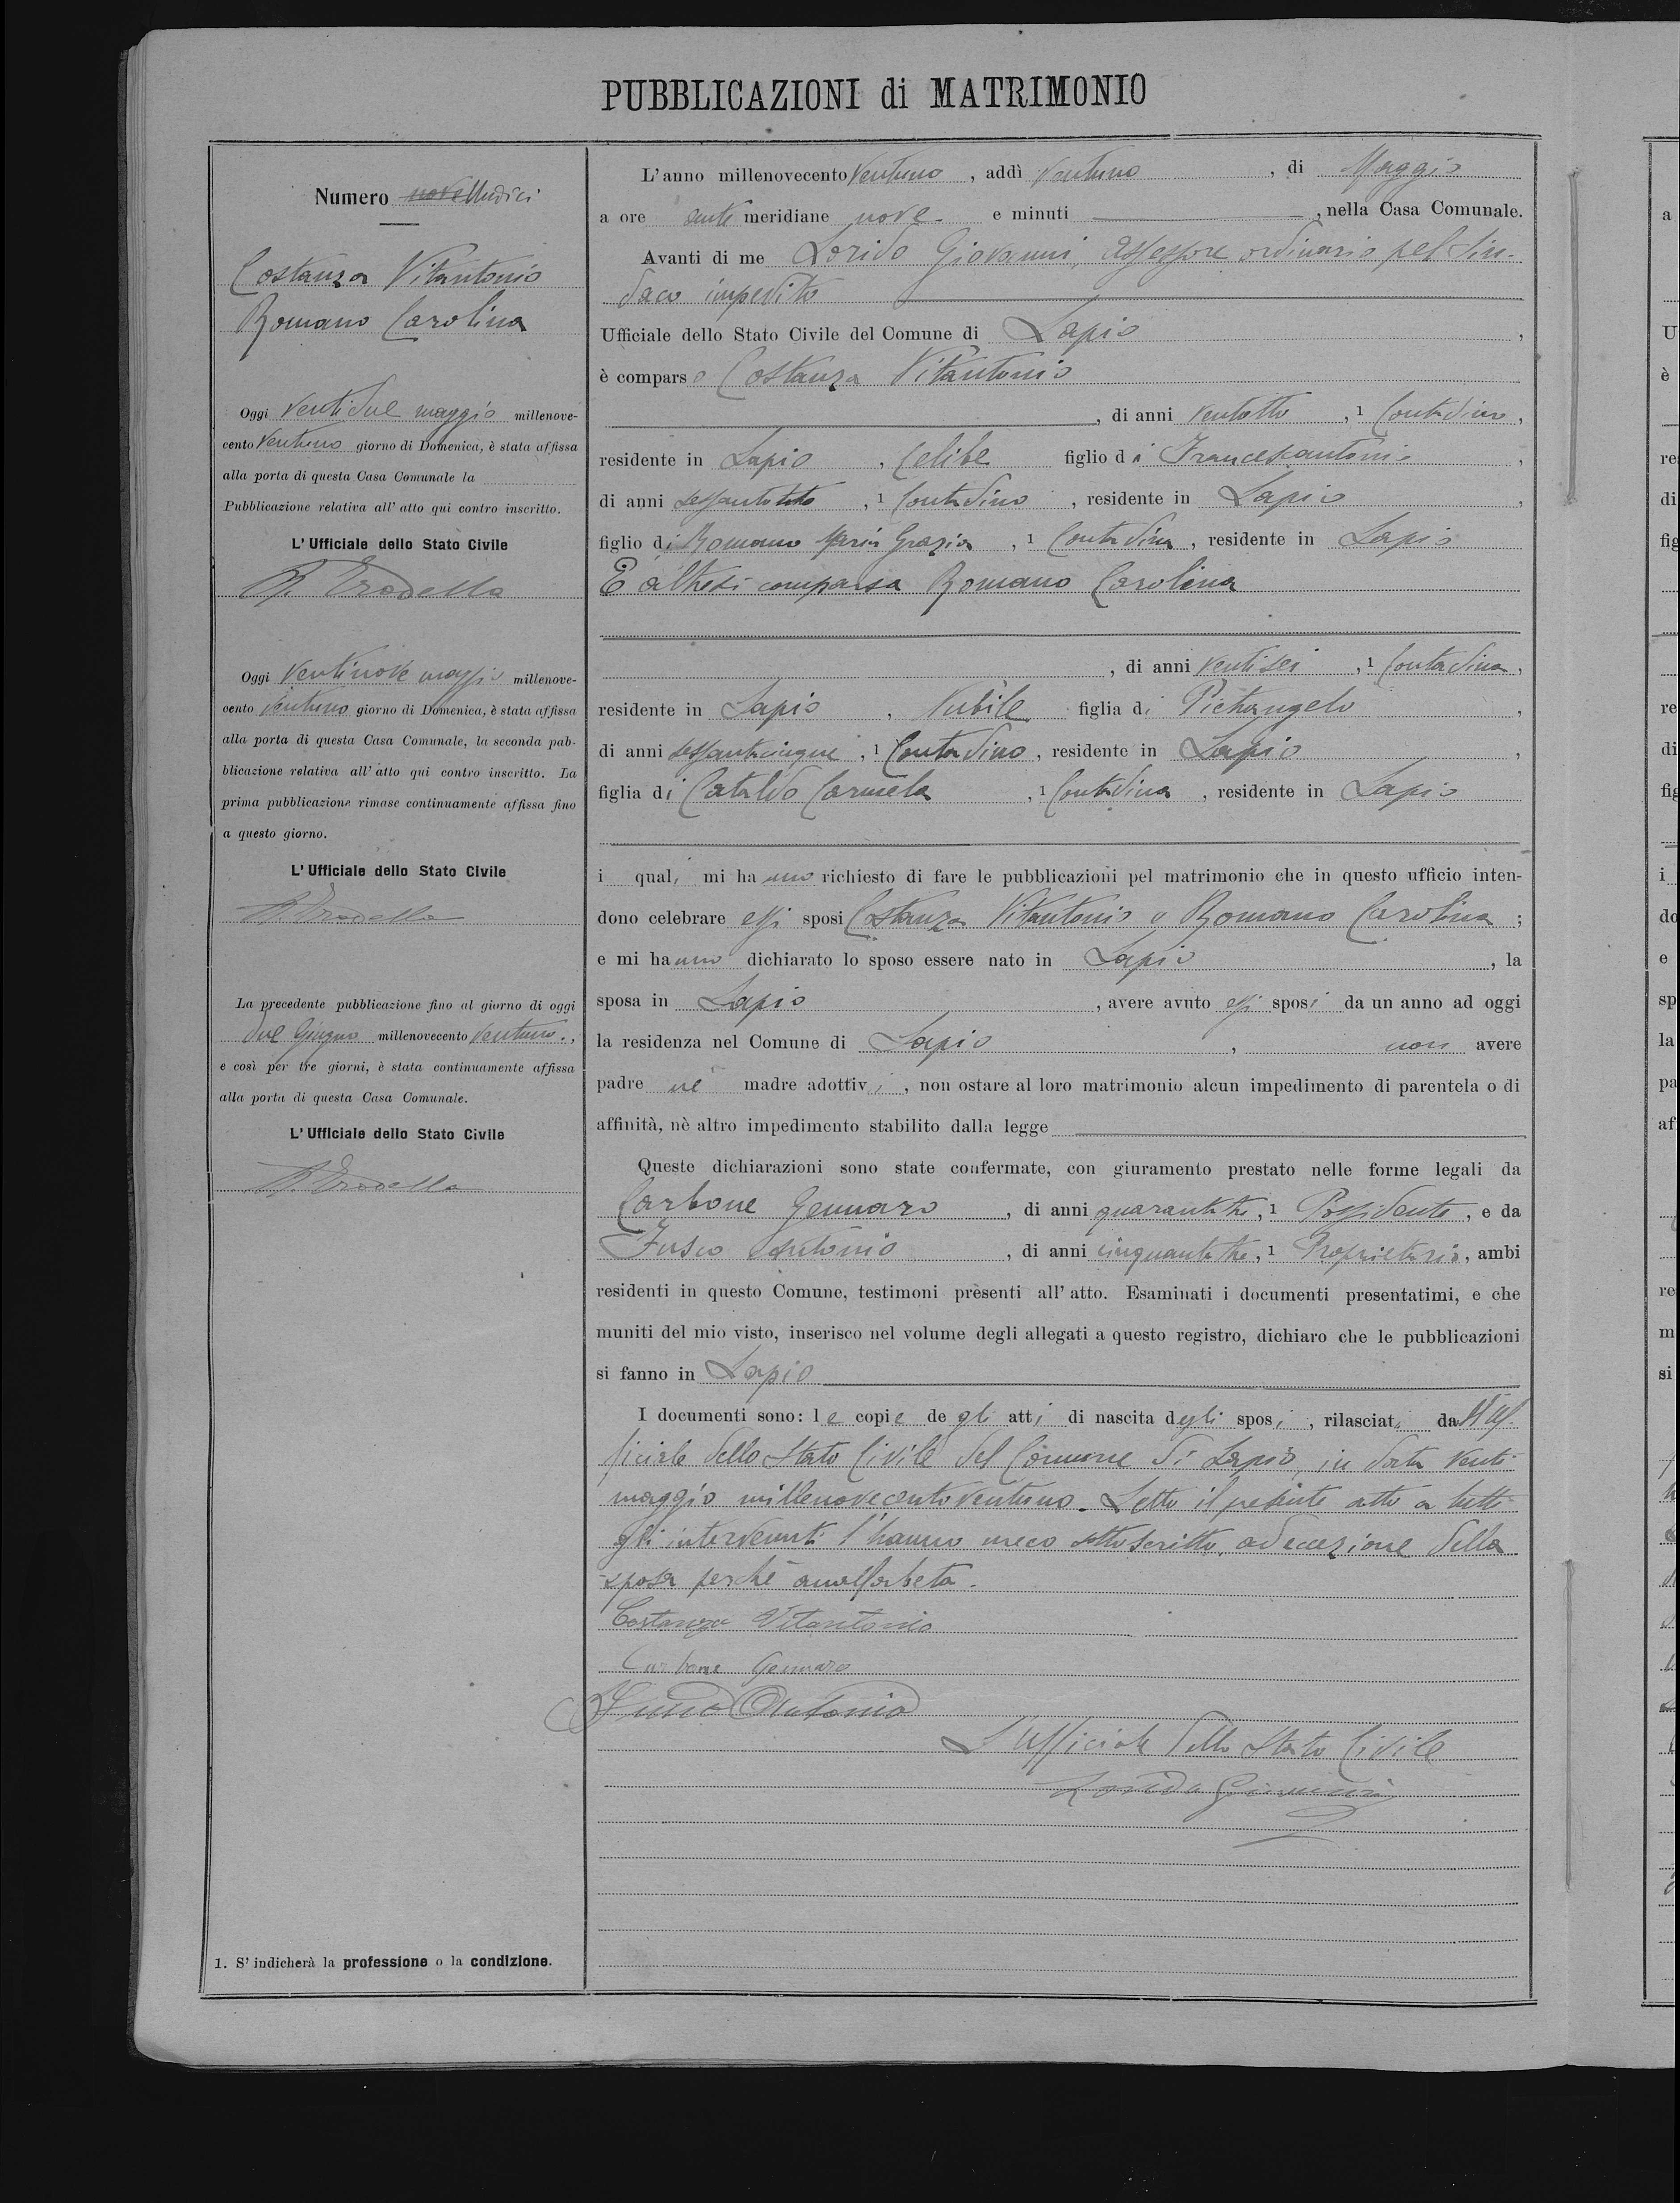 PUBBLICAZIONI di MATRIMONIO
Numero nove Undici
Costanza Vitantonio
Romano Carolina
Oggi ventidue maggio millenove-
cento ventuno giorno di Domenica, è stata affissa
alla porta di questa Casa Comunale la
Pubblicazione relativa all' atto qui contro inscritto.
L' Ufficiale dello Stato Civile
Oggi ventinove maggio millenove-
cento ventuno giorno di Domenica, è stata affissa
alla porta di questa Casa Comunale, la seconda pub-
blicazione relativa all' atto qui contro inscritto. La
prima pubblicazione rimase continuamente affissa fino
a questo giorno.
L' Ufficiale dello Stato Civile
La precedente pubblicazione fino al giorno di oggi
due Giugno millenovecento ventuno.,
e così per tre giorni, è stata continuamente affissa
alla porta di questa Casa Comunale.
L' Ufficiale dello Stato Civile
1. S' indicherà la professione o la condizione.
L'anno millenovecento ventuno, addì ventuno, di Maggio
a ore anti meridiane nove e minuti, nella Casa Comunale.
Avanti di me Lorido Giovanni, assessore ordinario pel Sin-
daco impedito
Ufficiale dello Stato Civile del Comune di Lapio,
è comparso Costanza Vitantonio
, di anni ventotto, 1 Contadino,
residente in Lapio, Celibe figlio di Francescantonio,
di anni sessantotto, 1 Contadino, residente in Lapio,
figlio di Romano Maria Grazia, 1 Contadina, residente in Lapio
È altresì comparsa Romano Carolina
, di anni ventisei, 1 Contadina,
residente in Lapio, Nubile figlia di Pietrangelo,
di anni sessantacinque, 1 Contadino, residente in Lapio,
figlia di Cataldo Carmela, 1 Contadina, residente in Lapio
i quali mi hanno richiesto di fare le pubblicazioni pel matrimonio che in questo ufficio inten-
dono celebrare essi sposi Costanza Vitantonio e Romano Carolina;
e mi hanno dichiarato lo sposo essere nato in Lapio, la
sposa in Lapio, avere avuto essi sposi da un anno ad oggi
la residenza nel Comune di Lapio, non avere
padre nè madre adottivi, non ostare al loro matrimonio alcun impedimento di parentela o di
affinità, nè altro impedimento stabilito dalla legge
Queste dichiarazioni sono state confermate, con giuramento prestato nelle forme legali da
Carbone Gennaro, di anni quarantatre, 1 Possidente, e da
Fusco Antonio, di anni cinquantatre, 1 Proprietario, ambi
residenti in questo Comune, testimoni presenti all' atto. Esaminati i documenti presentatimi, e che
muniti del mio visto, inserisco nel volume degli allegati a questo registro, dichiaro che le pubblicazioni
si fanno in Lapio
I documenti sono: le copie degli atti di nascita degli sposi, rilasciati dall'Uf-
ficiale dello Stato Civile del Comune di Lapio, in data venti
maggio millenovecentoventuno. Letto il presente atto a tutti
gli intervenuti l'hanno meco sottoscritto, ad eccezione della
sposa perchè analfabeta.
Costanza Vitantonio
Carbone Gennaro
Fusco Antonio
L'Ufficiale dello Stato Civile
Lorido Giovanni